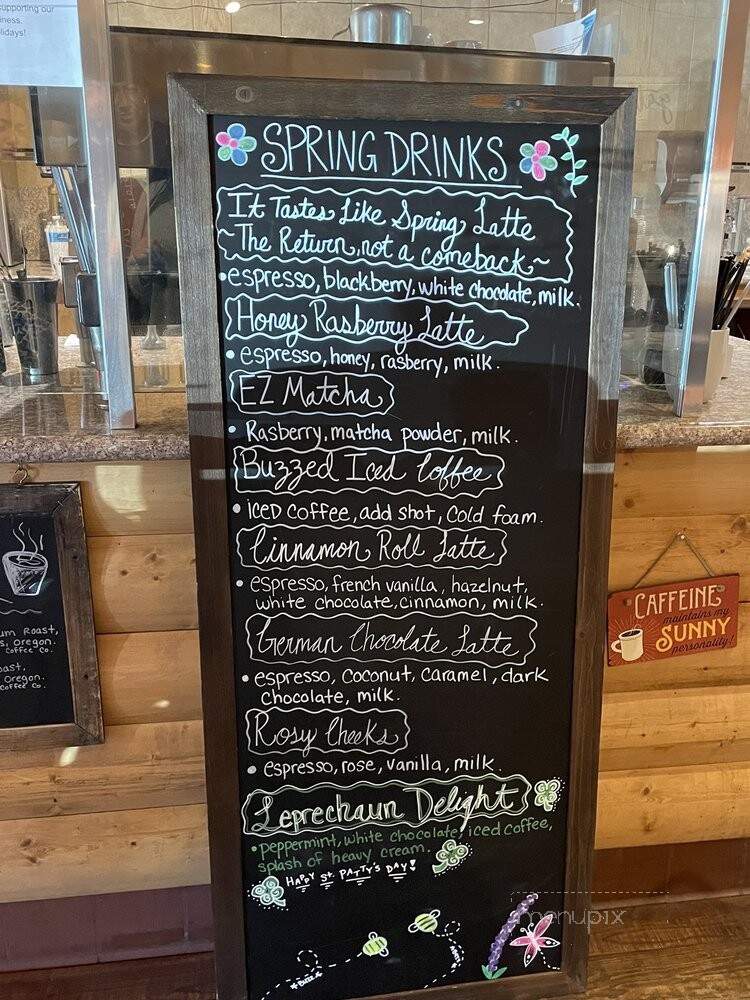 supporting our
iness.
lidays!
SPRING DRINKS
It Tastes Like Spring Latte
~The Return, not a comeback~
•espresso, blackberry, white chocolate, milk.
Honey Rasberry Latte
• espresso, honey, rasberry, milk.
EZ Matcha
• Rasberry, matcha powder, milk.
Buzzed Iced Coffee
• iced coffee, add shot, cold foam.
Cinnamon Roll Latte
• espresso, french vanilla, hazelnut,
white chocolate, cinnamon, milk.
German Chocolate Latte
• espresso, coconut, caramel, dark
chocolate, milk.
Rosy Cheeks
• espresso, rose, vanilla, milk.
Leprechaun Delight
•peppermint, white chocolate, iced coffee,
splash of heavy cream.
HAPPY St. PATTY'S DAY!
um Roast,
s, Oregon.
Coffee Co.
oast,
Oregon.
Coffee Co.
CAFFEINE
maintains my
SUNNY
personality!
menupix